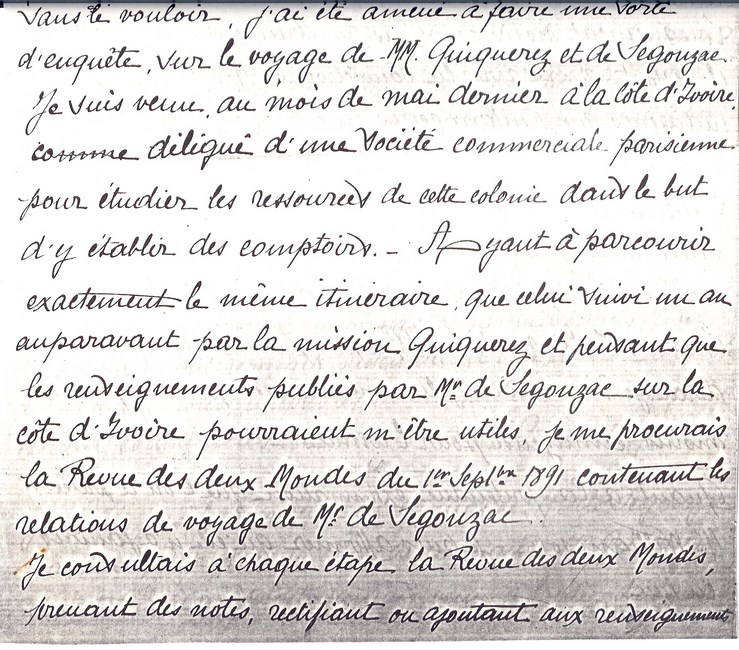 sans le vouloir, j'ai été amené à faire une sorte
d'enquête, sur le voyage de MM. Quiquerez et de Segonzac
Je suis venu, au mois de mai dernier à la côte d'Ivoire,
comme délégué d'une société commerciale parisienne
pour étudier les ressources de cette colonie dans le but
d'y établir des comptoirs. – Ayant à parcourir
exactement le même itinéraire, que celui suivi un an
auparavant par la mission Quiquerez et pensant que
les renseignements publiés par Mr de Segonzac sur la
côte d'Ivoire pourraient m'être utiles, je me procurais
la Revue des deux Mondes du 1er Septbre 1891 contenant les
relations de voyage de Mr de Segonzac.
Je consultais à chaque étape la Revue des deux Mondes,
prenant des notes, rectifiant ou ajoutant aux renseignements